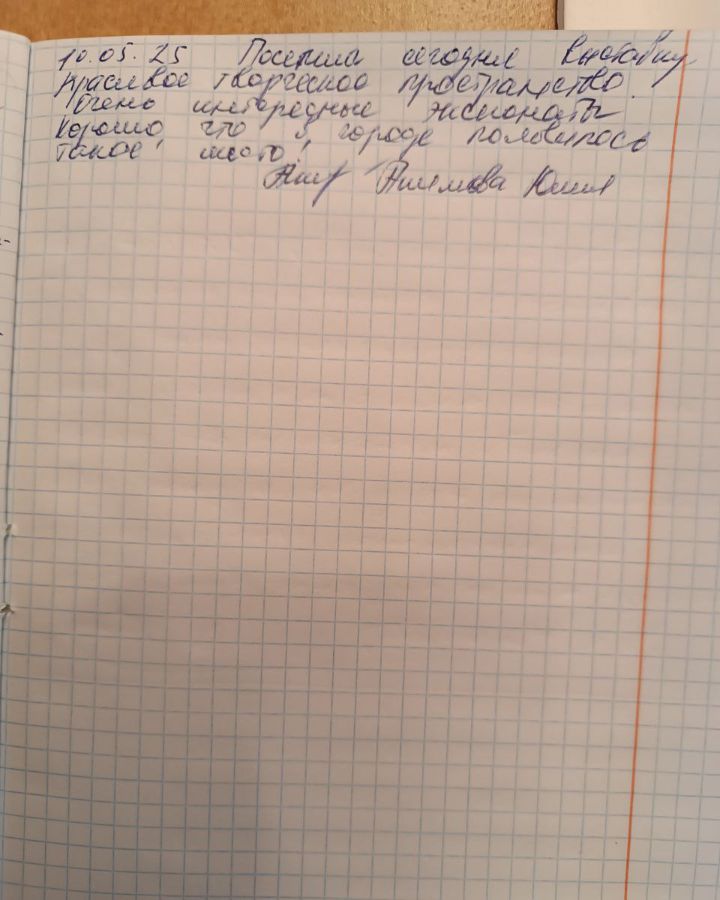 10.05.25 Посетила сегодня выставку
красивое творческое пространство.
Очень интересные экспонаты
Хорошо, что в городе появилось
такое место!
Юлия